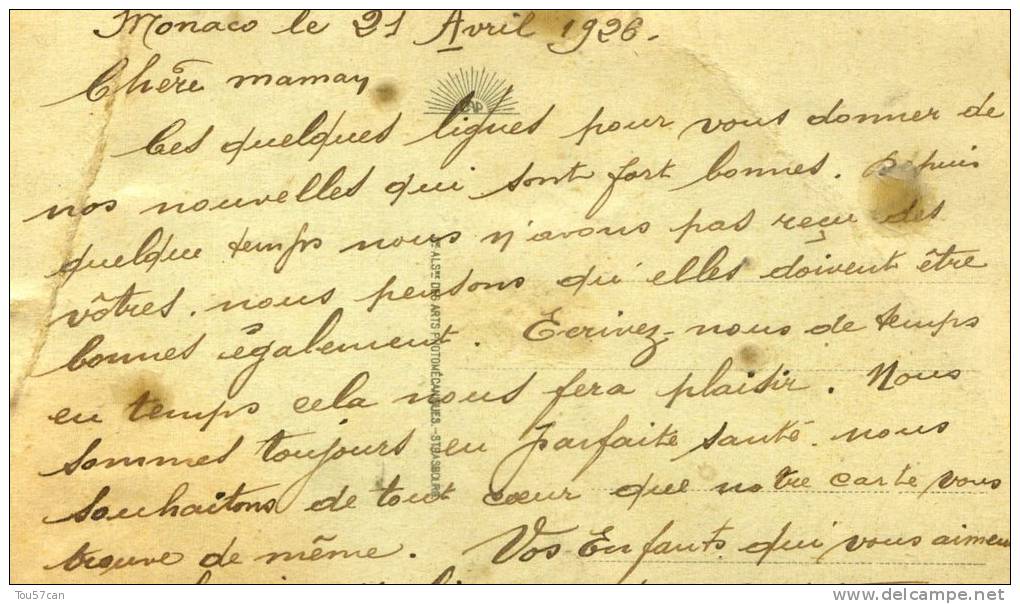 Monaco le 21 Avril 1926.
Chère maman
Ces quelques lignes pour vous donner de
nos nouvelles qui sont fort bonnes. Depuis
quelque temps nous n'avons pas reçu des
vôtres. nous pensons qu'elles doivent être
bonnes également. Ecrivez-nous de temps
en temps cela nous fera plaisir. Nous
sommes toujours en parfaite santé. nous
souhaitons de tout cœur que notre carte vous
trouve de même. Vos Enfants qui vous aiment
CAP
ALSNE DES ARTS PHOTOMÉCANIQUES.-STRASBOURG
Tou57can
delcampe.net